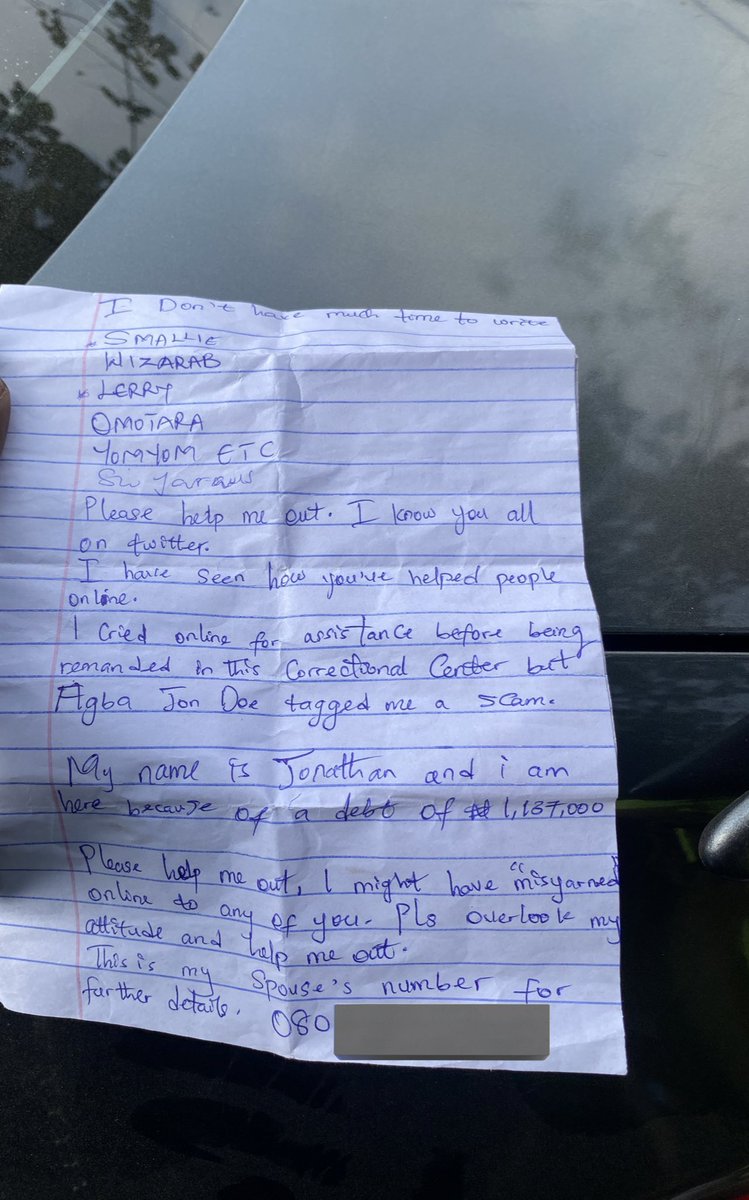 I Don't have much time to write
SMALLIE
WIZARAB
LERRY
OMOTARA
YOMYOM ETC
Sir
Please help me out. I know you all
on twitter.
I have seen how you've helped people
online.
I cried online for assistance before being
remanded in this Correctional Center but
Agba Jon Doe tagged me a scam.
My name is Jonathan and i am
here because of a debt of ₦ 1,137,000
Please help me out, I might have "misyarned"
online to any of you. Pls overlook my
attitude and help me out.
This is my Spouse's number for
further details. 080